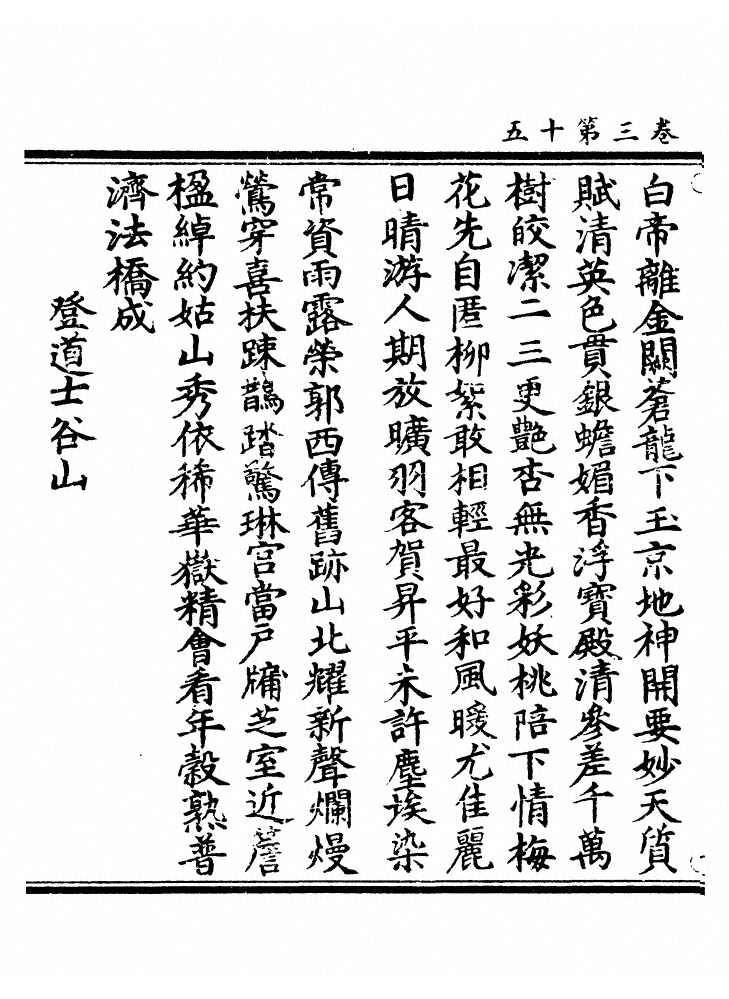 卷三第十五
白帝離金闕蒼龍下玉京地神開要妙天質
賦清英色貫銀蟾媚香浮寶殿清參差千萬
樹皎潔二三更艷杏無光彩妖桃陪下情梅
花先自匿柳絮敢相輕最好和風暖尤佳麗
日晴游人期放曠羽客賀昇平未許塵埃染
常資雨露榮郭西傳舊跡山北耀新聲爛熳
鶯穿喜扶踈鵲踏驚琳宫當户牖芝室近簷
楹綽約姑山秀依稀華嶽精會看年穀熟普
濟法橋成
登道士谷山